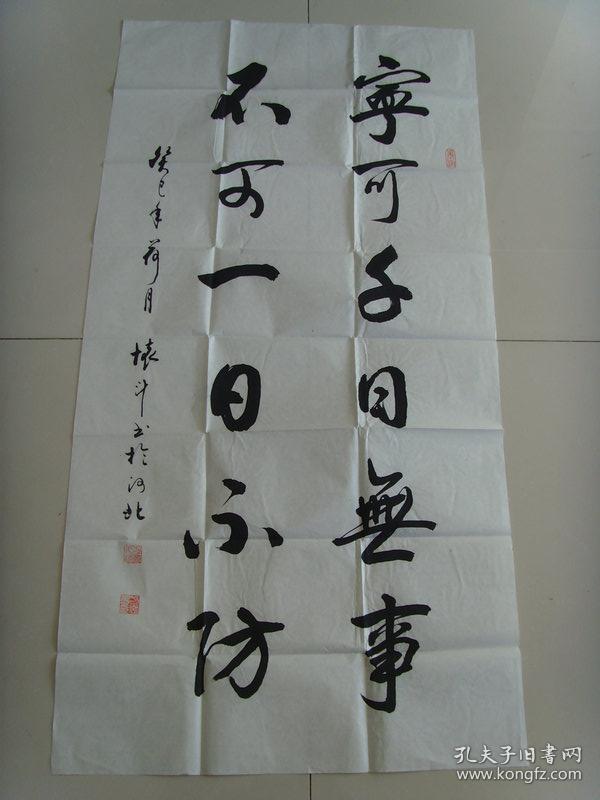 寧可千日無事
不可一日不防
癸巳年荷月 懷斗书於河北
孔夫子旧書网
www.kongfz.com